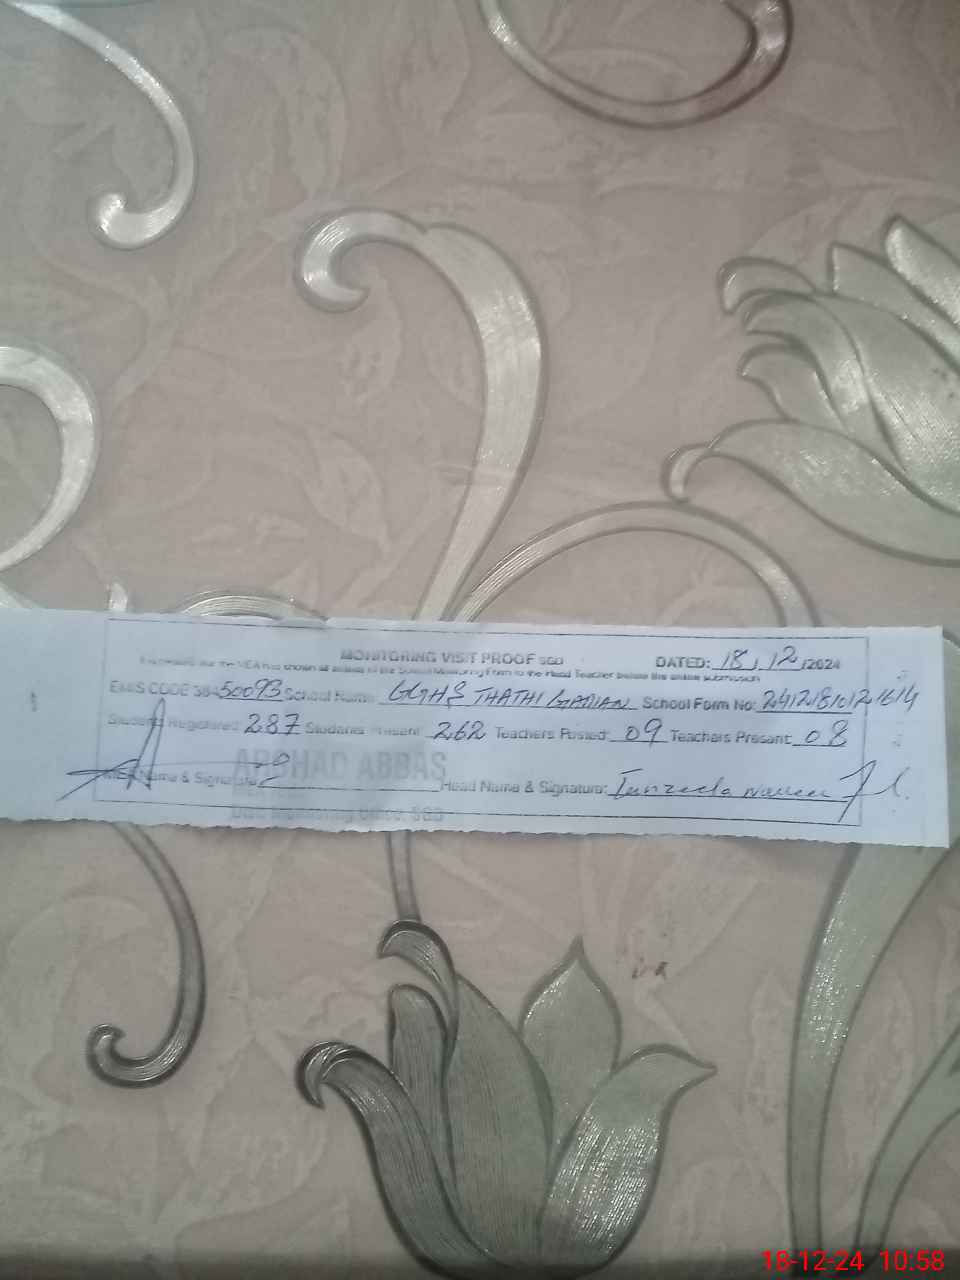 MONITORING VISIT PROOF SGD DATED: 18, 12, /2024
the MEA has shown all to the Head Teacher before the online submission
EMIS CODE 38450093 School Name: GGHS THATHI School Form No: 24121810121614
Students Registered: 287 Students Present: 262 Teachers Posted: 09 Teachers Present: 08
MEA Name & Signature: ARSHAD ABBAS Head Name & Signature: Tanzeela
Monitoring Officer, SGD
18-12-24 10:58